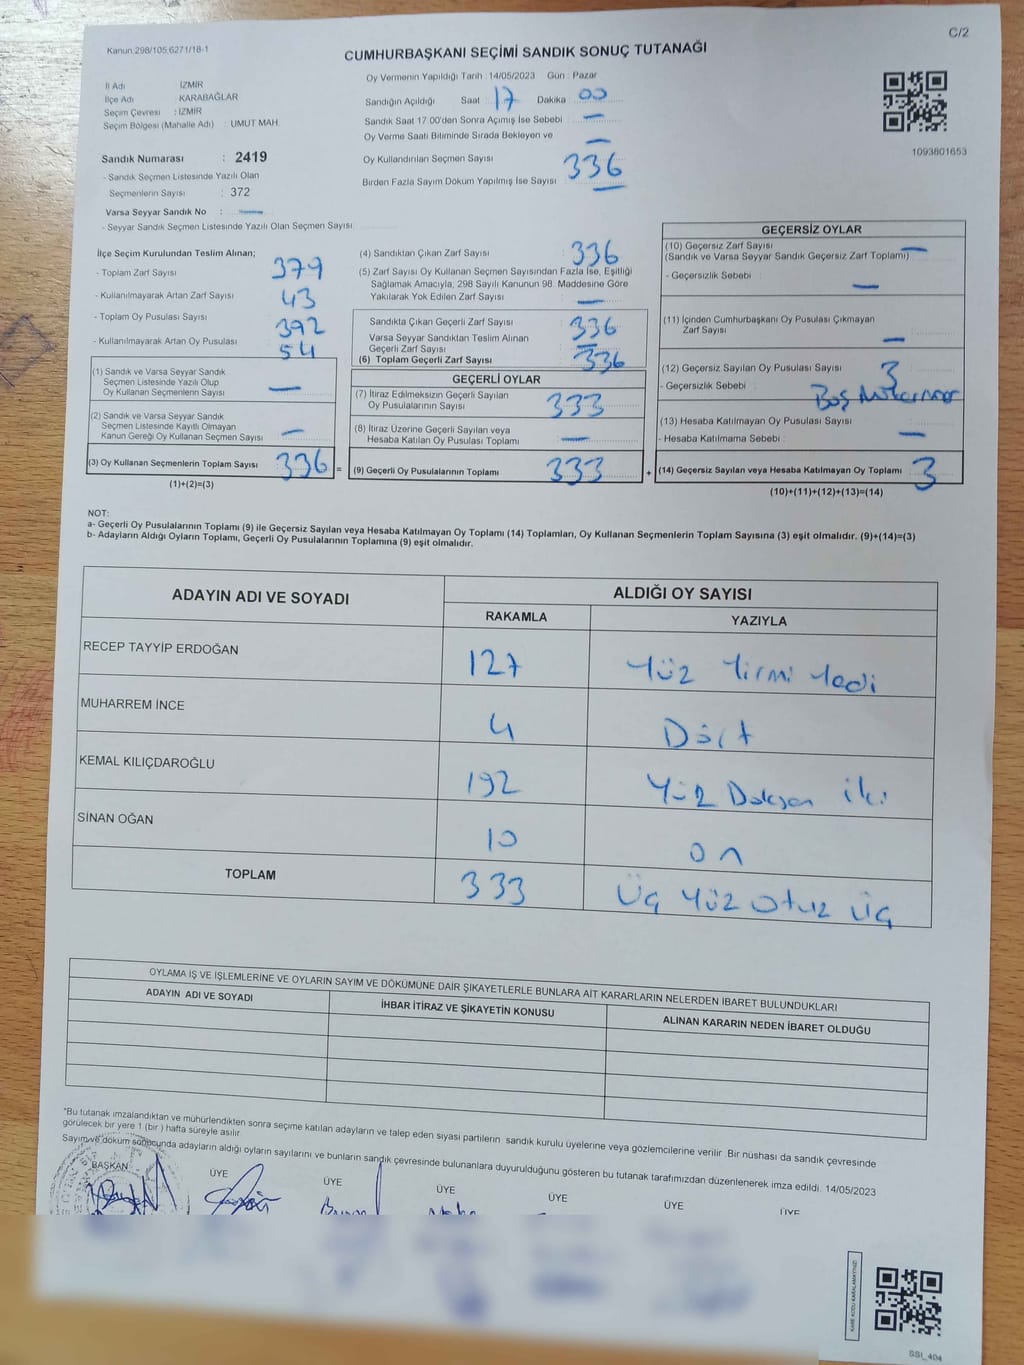 C/2
Kanun 298/105,6271/18-1
CUMHURBAŞKANI SEÇİMİ SANDIK SONUÇ TUTANAĞI
İl Adı : İZMİR
İlçe Adı : KARABAĞLAR
Seçim Çevresi : İZMİR
Seçim Bölgesi (Mahalle Adı) : UMUT MAH.
Sandık Numarası : 2419
- Sandık Seçmen Listesinde Yazılı Olan
Seçmenlerin Sayısı : 372
Varsa Seyyar Sandık No : —
- Seyyar Sandık Seçmen Listesinde Yazılı Olan Seçmen Sayısı
Oy Vermenin Yapıldığı Tarih : 14/05/2023 Gün : Pazar
Sandığın Açıldığı Saat 17 Dakika 00
Sandık Saat 17.00'den Sonra Açımış İse Sebebi —
Oy Verme Saati Bitiminde Sırada Bekleyen ve
Oy Kullandırılan Seçmen Sayısı —
Birden Fazla Sayım Döküm Yapılmış İse Sayısı 336 —
1093601653
İlçe Seçim Kurulundan Teslim Alınan;
- Toplam Zarf Sayısı 379
- Kullanılmayarak Artan Zarf Sayısı 43
- Toplam Oy Pusulası Sayısı 392
- Kullanılmayarak Artan Oy Pusulası 54
(1) Sandık ve Varsa Seyyar Sandık
Seçmen Listesinde Yazılı Olup
Oy Kullanan Seçmenlerin Sayısı —
(2) Sandık ve Varsa Seyyar Sandık
Seçmen Listesinde Kayıtlı Olmayan
Kanun Gereği Oy Kullanan Seçmen Sayısı —
(3) Oy Kullanan Seçmenlerin Toplam Sayısı 336 =
(1)+(2)=(3)
(4) Sandıktan Çıkan Zarf Sayısı 336
(5) Zarf Sayısı Oy Kullanan Seçmen Sayısından Fazla İse, Eşitliği
Sağlamak Amacıyla, 298 Sayılı Kanunun 98. Maddesine Göre
Yakılarak Yok Edilen Zarf Sayısı —
Sandıkta Çıkan Geçerli Zarf Sayısı 336
Varsa Seyyar Sandıktan Teslim Alınan
Geçerli Zarf Sayısı —
(6) Toplam Geçerli Zarf Sayısı 336
GEÇERLİ OYLAR
(7) İtiraz Edilmeksizin Geçerli Sayılan
Oy Pusulalarının Sayısı 333
(8) İtiraz Üzerine Geçerli Sayılan veya
Hesaba Katılan Oy Pusulası Toplamı —
(9) Geçerli Oy Pusulalarının Toplamı 333 +
GEÇERSİZ OYLAR
(10) Geçersiz Zarf Sayısı —
(Sandık ve Varsa Seyyar Sandık Geçersiz Zarf Toplamı)
- Geçersizlik Sebebi : —
(11) İçinden Cumhurbaşkanı Oy Pusulası Çıkmayan
Zarf Sayısı —
(12) Geçersiz Sayılan Oy Pusulası Sayısı 3
- Geçersizlik Sebebi : Boş
(13) Hesaba Katılmayan Oy Pusulası Sayısı
- Hesaba Katılmama Sebebi : —
(14) Geçersiz Sayılan veya Hesaba Katılmayan Oy Toplamı 3
(10)+(11)+(12)+(13)=(14)
NOT:
a- Geçerli Oy Pusulalarının Toplamı (9) ile Geçersiz Sayılan veya Hesaba Katılmayan Oy Toplamı (14) Toplamları, Oy Kullanan Seçmenlerin Toplam Sayısına (3) eşit olmalıdır. (9)+(14)=(3)
b- Adayların Aldığı Oyların Toplamı, Geçerli Oy Pusulalarının Toplamına (9) eşit olmalıdır.
ADAYIN ADI VE SOYADI ALDIĞI OY SAYISI
RAKAMLA YAZIYLA
RECEP TAYYİP ERDOĞAN 127 Yüz Yirmi Yedi
MUHARREM İNCE 4 Dört
KEMAL KILIÇDAROĞLU 192 Yüz Doksan iki
SİNAN OĞAN 10 on
TOPLAM 333 Üç Yüz Otuz Üç
OYLAMA İŞ VE İŞLEMLERİNE VE OYLARIN SAYIM VE DÖKÜMÜNE DAİR ŞİKAYETLERLE BUNLARA AİT KARARLARIN NELERDEN İBARET BULUNDUKLARI
ADAYIN ADI VE SOYADI İHBAR İTİRAZ VE ŞİKAYETİN KONUSU ALINAN KARARIN NEDEN İBARET OLDUĞU
*Bu tutanak imzalandıktan ve mühürlendikten sonra seçime katılan adayların ve talep eden siyasi partilerin sandık kurulu üyelerine veya gözlemcilerine verilir. Bir nüshası da sandık çevresinde
görülecek bir yere 1 (bir) hafta süreyle asılır.
Sayım ve döküm sonucunda adayların aldığı oyların sayılarını ve bunların sandık çevresinde bulunanlara duyurulduğunu gösteren bu tutanak tarafımızdan düzenlenerek imza edildi. 14/05/2023
BAŞKAN ÜYE ÜYE ÜYE ÜYE ÜYE ÜYE
KARE KODU KARALAMAYINIZ!
SSI_404